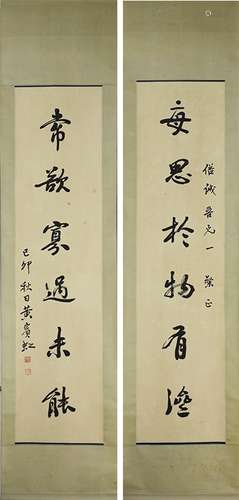 每思於物有濟
偕誠吾兄一粲正
常欲寡過未能
己卯秋日黃賓虹